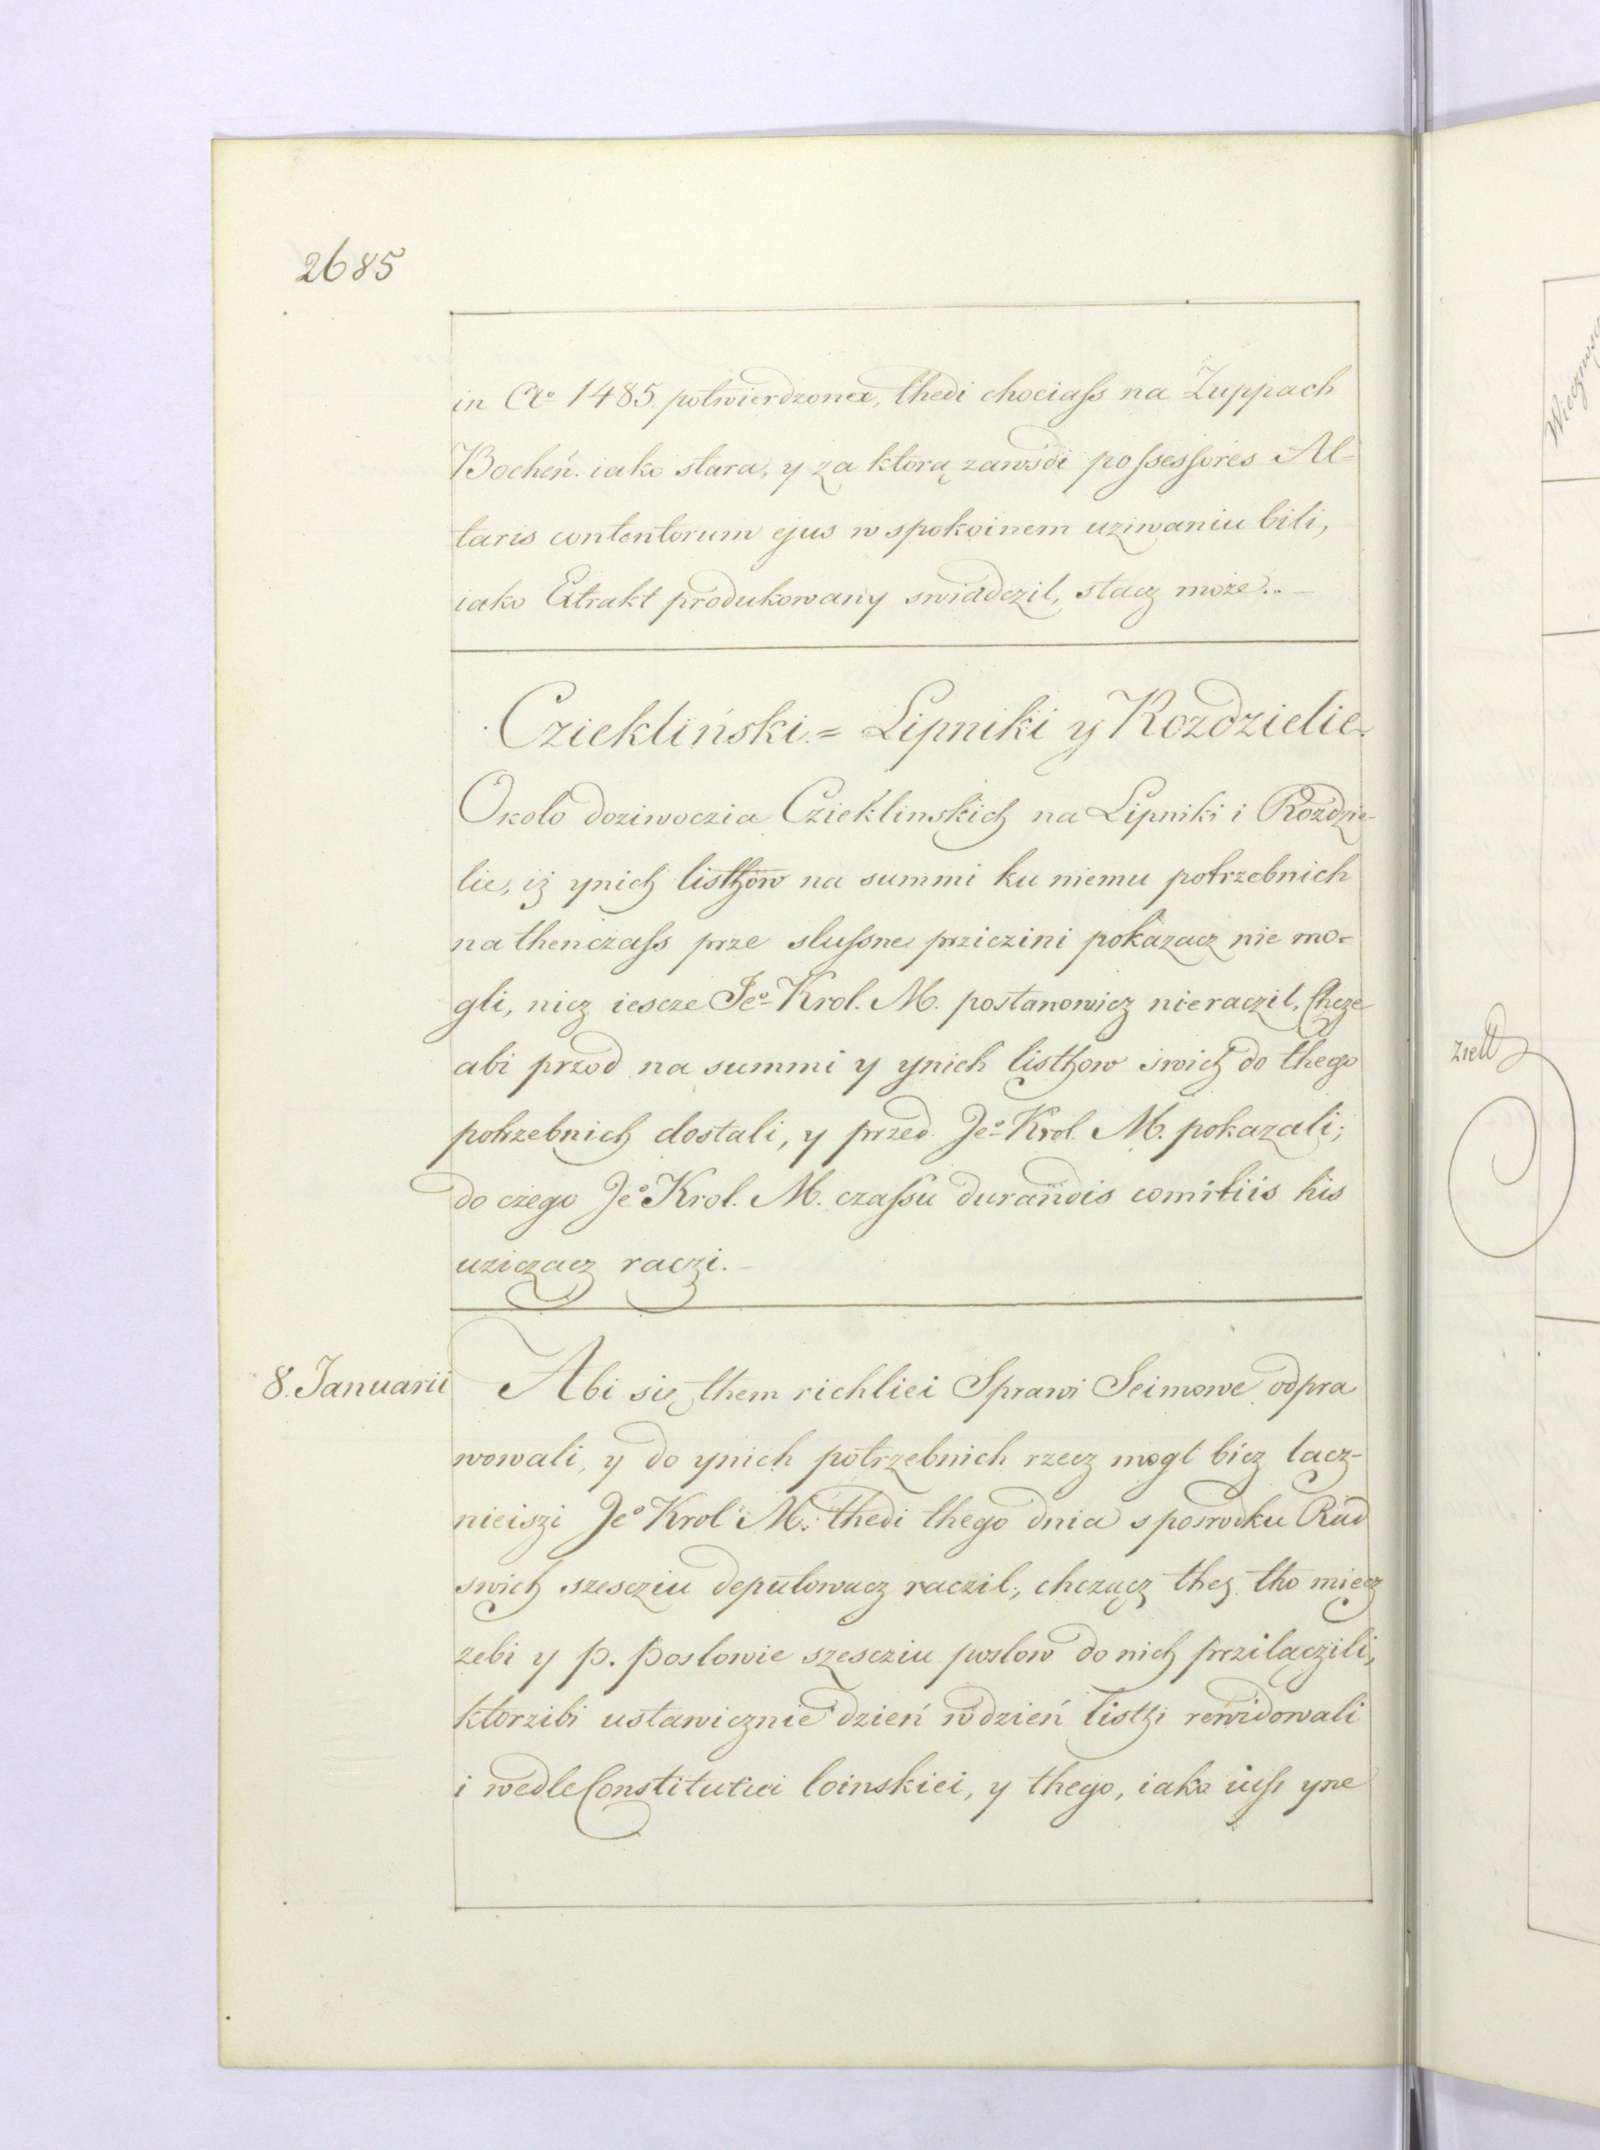 2685
in Ao 1485. potwierdzona, thedi chociaſs na Zuppach
Bocheń. iako stara, y za ktorą zawsdi poſseſsores Al-
taris contentorum ejus w spokoinem uziwaniu bili,
iako Extrakt produkowany swiadczil, stacz może. –
Cziekliński = Lipniki y Rozdzielie
Okolo doziwoczia Czieklinskich na Lipniki i Rozdzie-
lie, iż ynich listhow na summi ku niemu potrzebnich
na thenczaſs prze sluſsne prziczini pokazacz nie mo-
gli, nicz iescze Jeo Krol. M. postanowicz nieraczil, Chcze
abi przod na summi y ynich listhow swich do thego
potrzebnich dostali, y przed Jeo Krol. M. pokazali;
do czego Jeo Krol. M. czaſsu durandis comitiis his
uziczacz raczi. –
8. Januarii
Abi się them richliei Sprawi Seimowe odpra
wowali, y do ynich potrzebnich rzecz mogl bicz lacz-
nieiszi Jeo Krol M. thedi thego dnia s posrodku Rad
swich szescziu deputowacz raczil, chczącz thez tho miecz
zebi y p. poslowie szescziu poslow do nich przilączili,
ktorzibi ustawicznie dzień w dzień listhi rewidowali
i wedle Constitutiei loinskiei, y thego, iako iuſs yne
zield